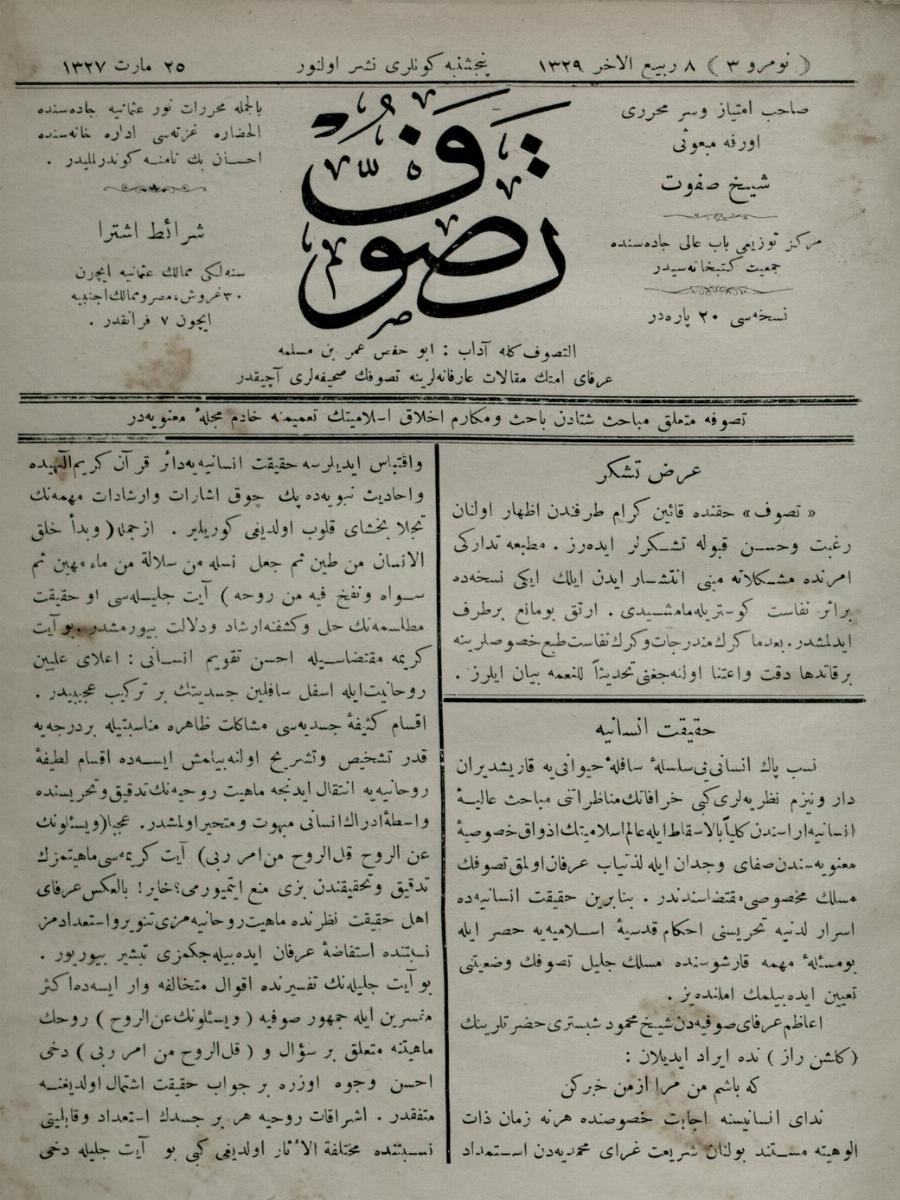 ( نومرو ٣ ) ٨ ربيع الاخر ١٣٢٩
پنجشنبه كونلرى نشر اولنور
٢٥ مارت ١٣٢٧
صاحب امتياز وسر محررى
اورفه مبعوثى
شيخ صفوت
مركز توزيعى باب عالى جاده‌سنده
جمعيت كتبخانه‌سيدر
نسخه‌سى ٢٠ پاره‌در
تصوف
بالجمله محررات نور عثمانيه جاده‌سنده
الحضاره غزته‌سى اداره خانه‌سنده
احسان بك نامنه كوندرلمليدر .
شرائط اشترا
سنه‌لكى ممالك عثمانيه ايچون
٣٠ غروش، مصر وممالك اجنبيه
ايچون ٧ فرانقدر .
التصوف كله آداب : ابو حفص عمر بن مسلمه
عرفاى امتك مقالات عارفانه‌لرينه تصوفك صحيفه‌لرى آچيقدر
تصوفه متعلق مباحث شتادن باحث ومكارم اخلاق اسلاميتك تعميمنه خادم مجلهٔ معنويه‌در
عرض تشكر
« تصوف » حقنده قائين كرام طرفندن اظهار اولنان
رغبت وحسن قبوله تشكرلر ايده‌رز . مطبعه تداركى
امرنده مشكلاته مبنى انتشار ايدن ايلك ايكى نسخه‌ده
براثر نفاست كوستريله‌مامشيدى . ارتق بومانع برطرف
ايدلمشدر . بعدما كرك مندرجات وكرك نفاست طبع خصوصلرينه
برقاتدها دقت واعتنا اولنه‌جغنى تحديثاً للنعمه بيان ايلرز .
حقيقت انسانيه
نسب پاك انسانى‌يى سلسلهٔ سافلهٔ حيوانى‌يه قاريشديران
دار ونيزم نظريه‌لرى كبى خرافاتك مناظراتنى مباحث عاليهٔ
انسانيه‌اراسندن كلياً بالاسقاط ايله عالم اسلاميتك اذواق خصوصيهٔ
معنويه‌سندن صفاى وجدان ايله لذتياب عرفان اولمق تصوفك
مسلك مخصوصى مقتضاسندندر . بنابرين حقيقت انسانيه‌ده
اسرار لدنيه تحريسنى احكام قدسيهٔ اسلاميه‌يه حصر ايله
بومسئلهٔ مهمه قارشوسنده مسلك جليل تصوفك وضعيتنى
تعيين ايده‌بيلمك املنده‌يز .
اعاظم عرفاى صوفيه‌دن شيخ محمود شبسترى حضرتلرينك
( كلشن راز ) نده ايراد ايديلان :
كه باشم من مرا ازمن خبركن
نداى انسانيسنه اجابت خصوصنده هرنه زمان ذات
الوهيته مستند بولنان شريعت غراى محمديه‌دن استمداد
واقتباس ايديلرسه حقيقت انسانيه‌يه دائر قرآن كريم الهيده
واحاديث نبويه‌ده پك چوق اشارات وارشادات مهمه‌نك
تجلا بخشاى قلوب اولديغى كوريلير . ازجمله ( وبدأ خلق
الانسان من طين ثم جعل نسله من سلالة من ماء مهين ثم
سواه ونفخ فيه من روحه ) آيت جليله‌سى او حقيقت
مطلسمه‌نك حل وكشفنه ارشاد ودلالت بيورمشدر . بو آيت
كريمه مقتضاسيله احسن تقويم انسانى : اعلاى عليين
روحانيت ايله اسفل سافلين جسديتك بر تركيب عجيبيدر .
اقسام كثيفهٔ جسديه‌سى مشاكات ظاهره مناسبتيله بردرجه‌يه
قدر تشخيص وتشريح اولنه‌بيلمش ايسه‌ده اقسام لطيفهٔ
روحانيه‌يه انتقال ايدنجه ماهيت روحيه‌نك تدقيق وتحريسنده
واسطهٔ ادراك انسانى مبهوت ومتحير اولمشدر . عجبا ( ويسئلونك
عن الروح قل الروح من امر ربى ) آيت كريمه‌سى ماهيتمزك
تدقيق وتحقيقندن بزى منع ايتميورمى؟ خاير! بالعكس عرفاى
اهل حقيقت نظرنده ماهيت روحانيه‌مزى تنوير واستعدادمز
نسبتنده استفاضهٔ عرفان ايده‌بيله‌جكمزى تبشير بيوريور .
بو آيت جليله‌نك تفسيرنده اقوال متخالفه وار ايسه‌ده اكثر
مفسرين ايله جمهور صوفيه ( ويسئلونك عن الروح ) روحك
ماهيتنه متعلق بر سؤال و ( قل الروح من امر ربى ) دخى
احسن وجوه اوزره بر جواب حقيقت اشتمال اولديغنه
متفقدر . اشراقات روحيه هر بر جسدك استعداد وقابليتى
نسبتنده مختلفة الآثار اولديغى كبى بو آيت جليله دخى